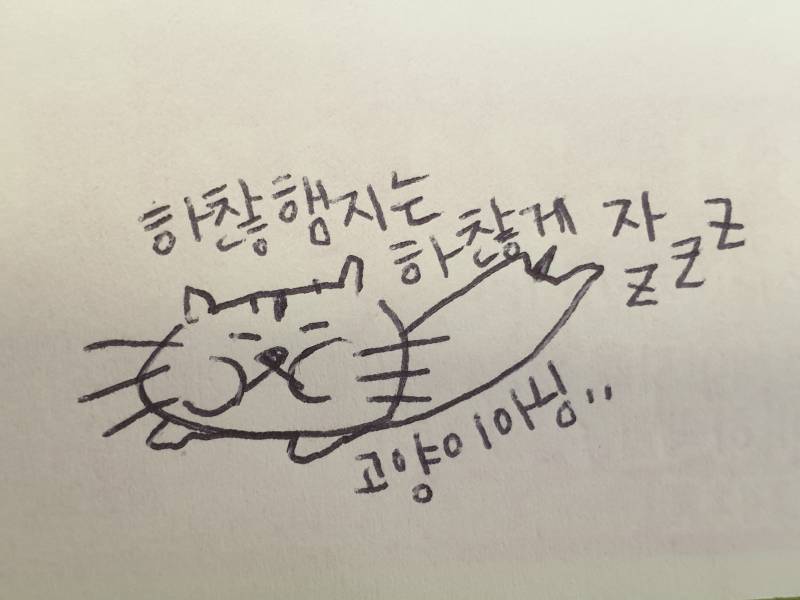 하찮햄지는
하찮게 자
zzz
고양이아님..